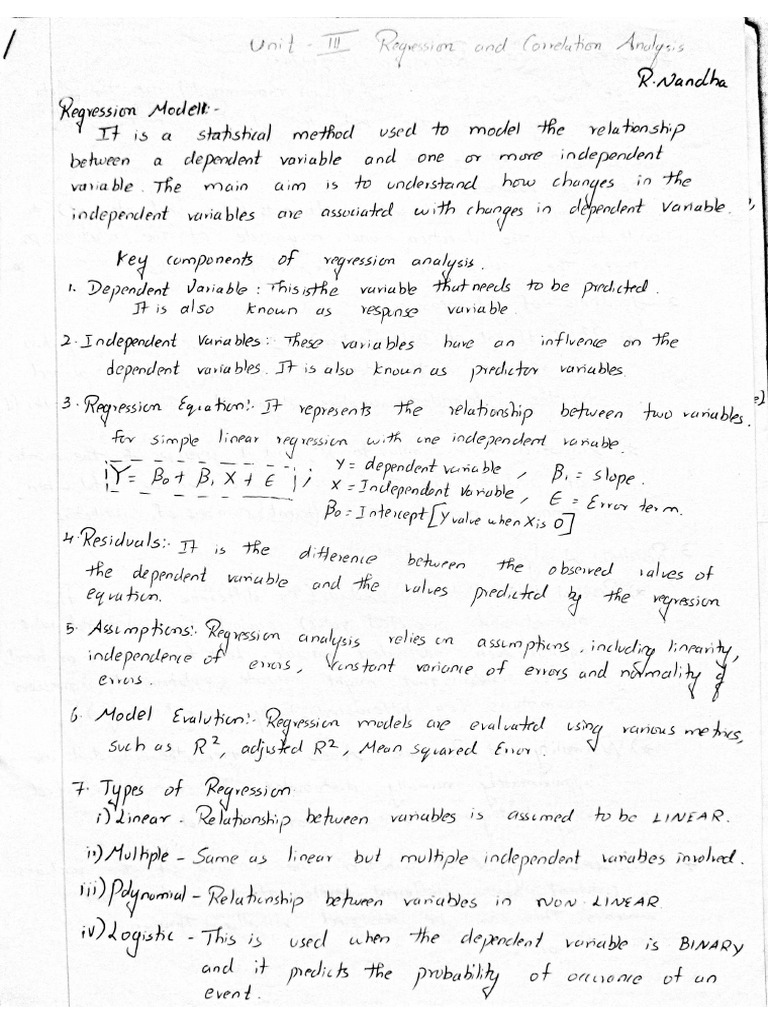 Unit - III Regression and Correlation Analysis
R. Nandha
Regression Model:-
It is a statistical method used to model the relationship
between a dependent variable and one or more independent
variable. The main aim is to understand how changes in the
independent variables are associated with changes in dependent variable.
Key components of regression analysis.
1. Dependent Variable : This is the variable that needs to be predicted.
It is also known as response variable.
2. Independent Variables: These variables have an influence on the
dependent variables. It is also known as predictor variables.
3. Regression Equation:- It represents the relationship between two variables.
for simple linear regression with one independent variable.
Y = β0 + β1 X + ε ; Y = dependent variable , β1 = slope.
X = Independent Variable , ε = Error term.
β0 = Intercept [Y value when X is 0]
4. Residuals:- It is the difference between the observed values of
the dependent variable and the values predicted by the regression
equation.
5. Assumptions:- Regression analysis relies on assumptions, including linearity,
independence of errors, constant variance of errors and normality of
errors.
6. Model Evalution:- Regression models are evaluated using various metrics,
such as R², adjusted R², Mean squared Error.
7. Types of Regression.
i) Linear - Relationship between variables is assumed to be LINEAR.
ii) Multiple - Same as linear but multiple independent variables involved.
iii) Polynomial - Relationship between variables in NON-LINEAR.
iv) Logistic - This is used when the dependent variable is BINARY
and it predicts the probability of occurance of an
event.